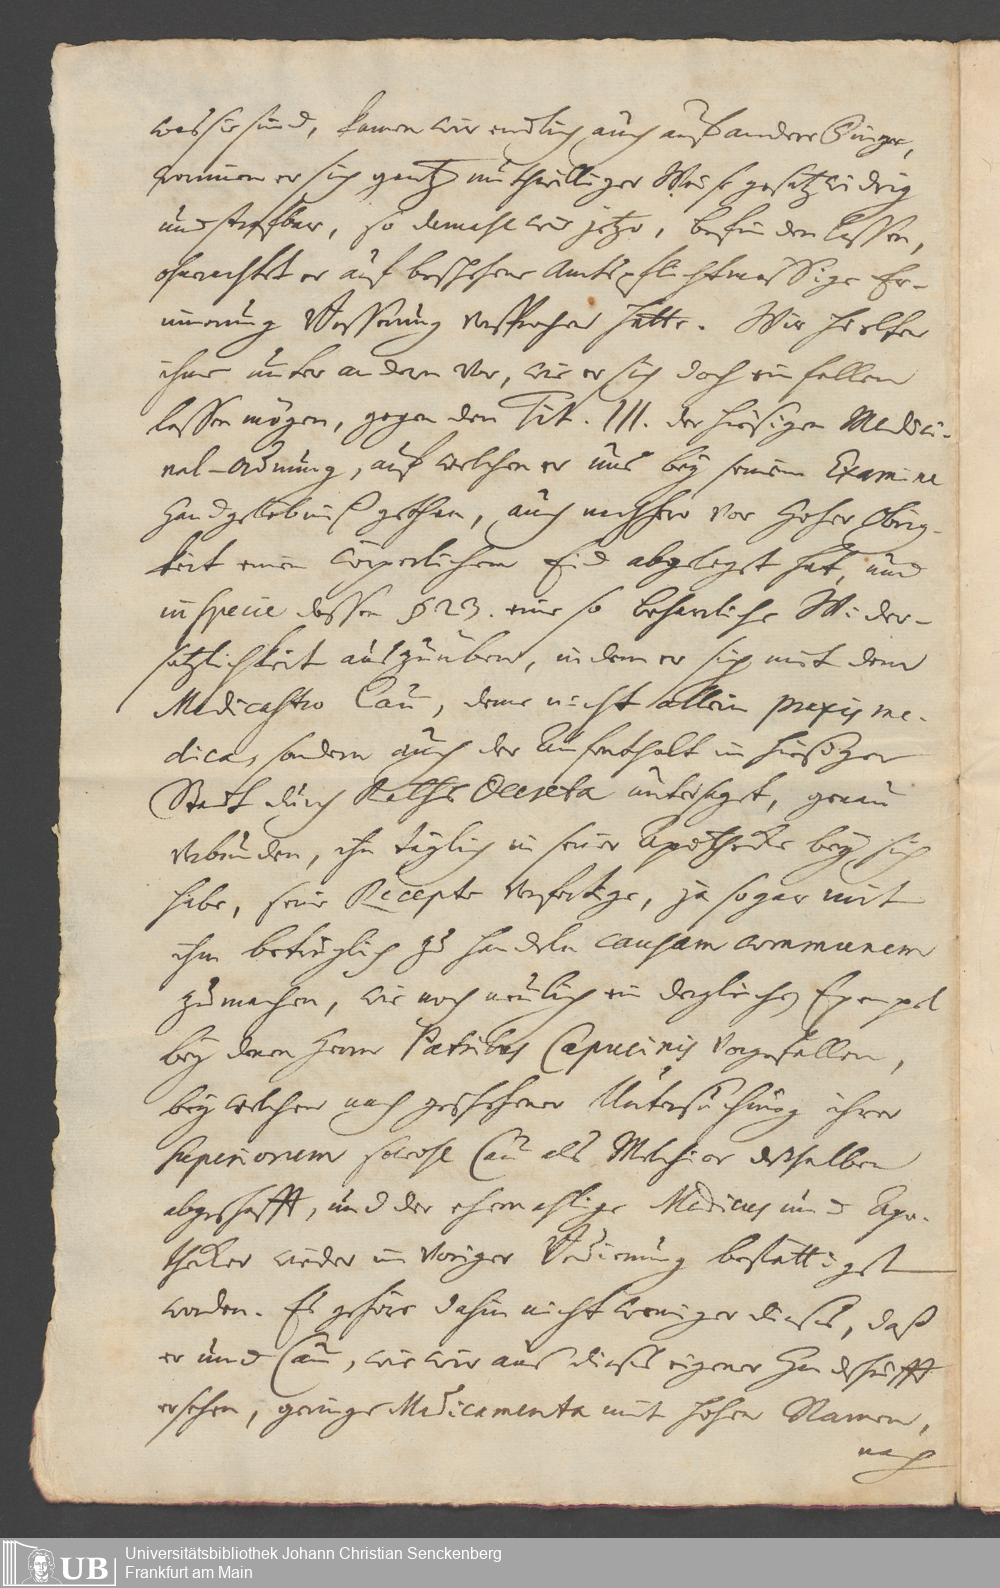 was sie sind, kamen wir endlich auch auf andere Dinge,
worinnen er sich gantz muthwilliger Weise gesetzwidrig
und strafbar, so damahls wie jetzo, befinden lassen,
ohnerachtet er auf beschehene Amtspflichtmässige Er-
innerung Besserung versprochen hätte. Wir hielten
ihme unter andern vor, wie er sich doch einfallen
lassen mögen, gegen den Tit. III. der hiesigen Medici-
nal-Ordnung, auf welchen er uns bey seinem Examine
Handgelöbniß gethan, auch nachhero vor Hoher Obrig-
keit einen cörperlichen Eid abgelegt hat, und
in specie dessen §23. eine so beharrliche Wider-
setzlichkeit auszuüben, indem er sich mit dem
Medicastro Cau, deme nicht allein praxis me-
dica, sondern auch der Aufenthalt in hiesiger
Stadt durch Raths Decreta untersagt, genau
verbunden, ihn täglich in seiner Apothecke bey sich
habe, seine Recepte verfertige, ja sogar mit
ihm betrüglich zu handeln causam communem
zu machen, wie noch neulich ein dergleichen Exempel
bey denen Herrn Patribus Capucinis vorgefallen,
bey welchen nach geschehener Untersuchung ihrer
superiorum sowohl Cau als Melchior deshalben
abgeschafft, und der ehemahlige Medicus und Apo-
theker wieder in voriger Bedienung bestättiget
worden. Es gehöre dahin nicht weniger dieses, daß
er und Cau, wie wir aus dieses eigener Handschrifft
ersehen, geringe Medicamenta mit hohen Namen,
nach
UB
Universitätsbibliothek Johann Christian Senckenberg
Frankfurt am Main